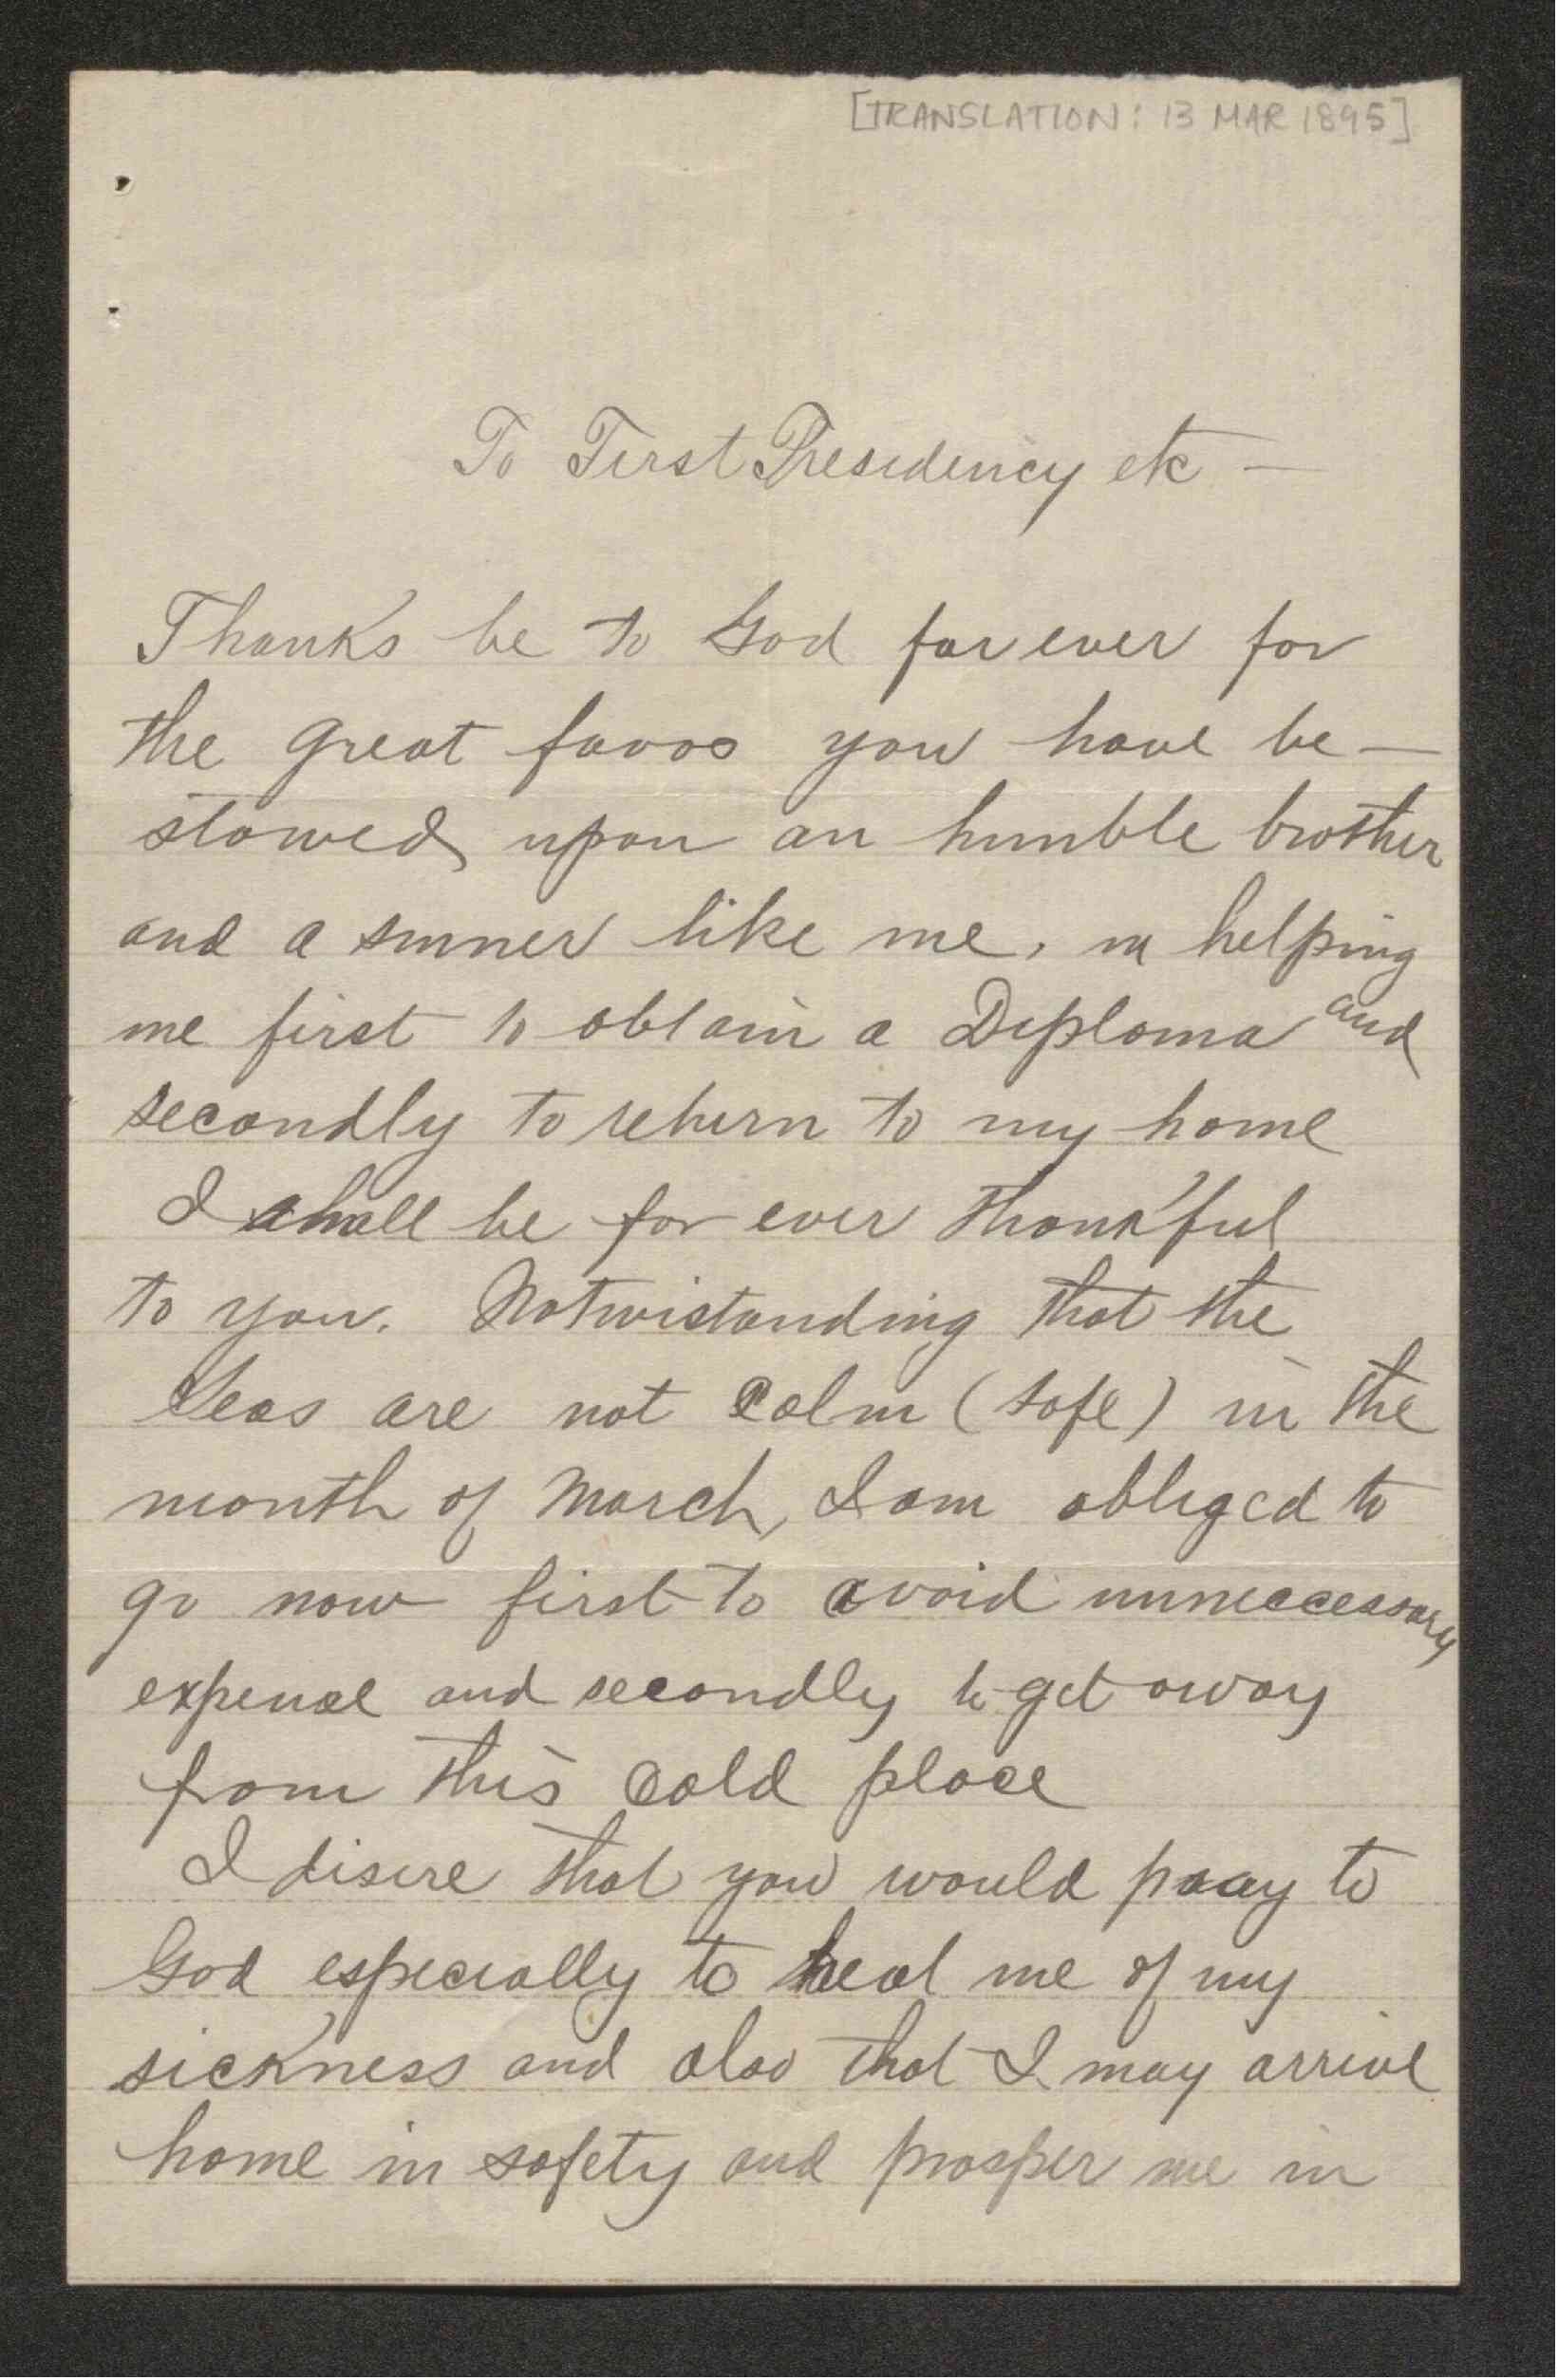 [TRANSLATION: 13 MAR 1895]
To First Presidency etc —
Thanks be to God for ever for
the great favos you have be—
stowed upon an humble brother
and a sinner like me, in helping
me first to obtain a Diploma and
secondly to return to my home
I shall be for ever thankful
to you. Notwistanding that the
Seas are not calm (safe) in the
month of March, I am obliged to
go now first to avoid unneccessary
expense and secondly to get away
from this cold place
I disire that you would pray to
God especially to heal me of my
sickness and also that I may arrive
home in safety and prosper me in